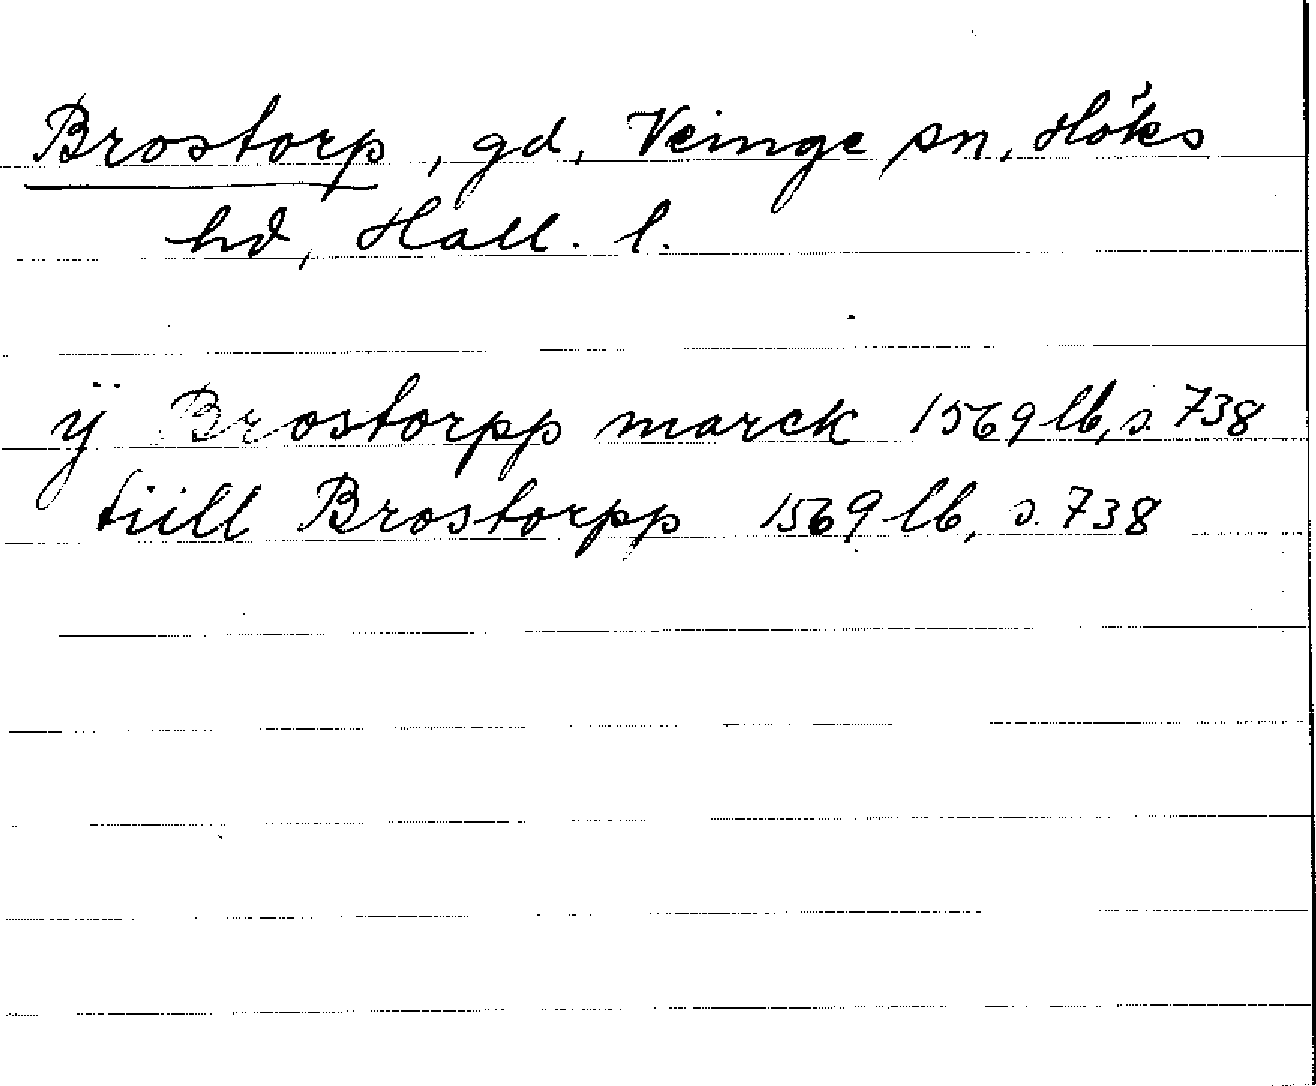 Brostorp, gd, Veinge sn, Höks
hd, Hall. l.
ÿ Brostorpp marck 1569 lb, s. 738
tiill Brostorpp 1569 lb, s. 738